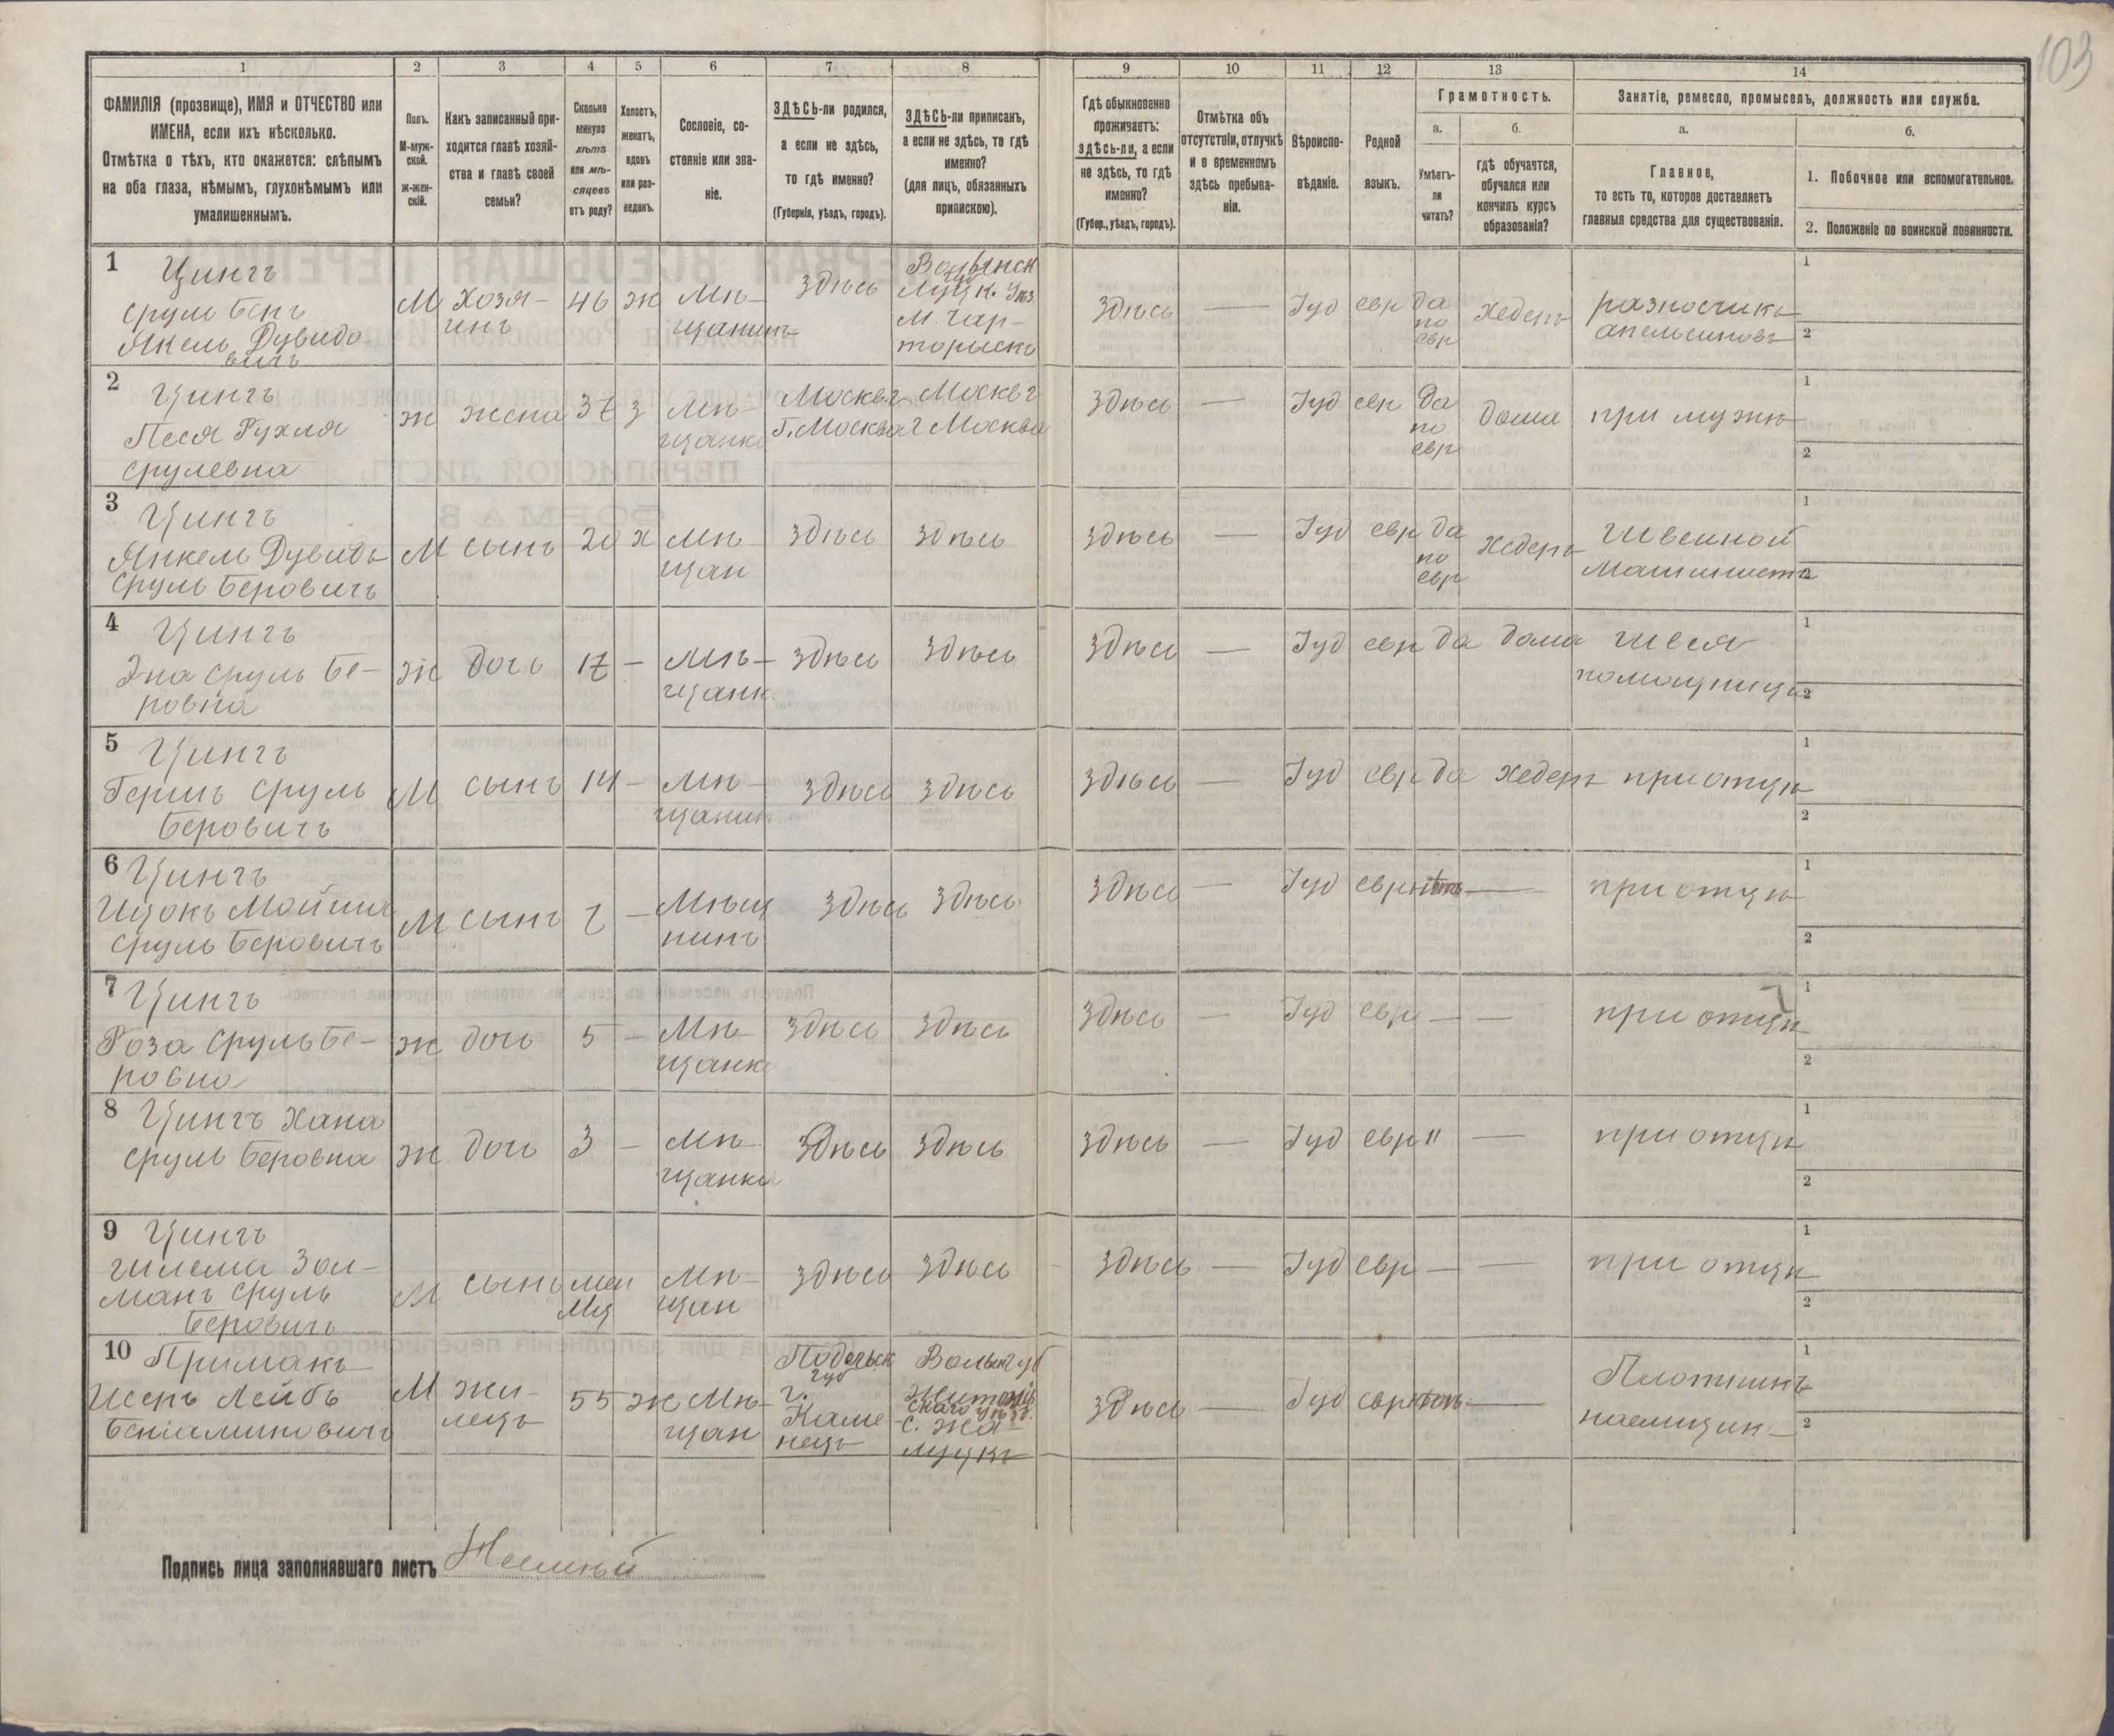 103
1 2 3 4 5 6 7 8 9 10 11 12 13 14
ФАМИЛІЯ (прозвище), ИМЯ и ОТЧЕСТВО или
ИМЕНА, если ихъ нѣсколько.
Отмѣтка о тѣхъ, кто окажется: слѣпымъ
на оба глаза, нѣмымъ, глухонѣмымъ или
умалишеннымъ.
Полъ.
М-муж-
ской.
ж-жен-
скій.
Какъ записанный при-
ходится главѣ хозяй-
ства и главѣ своей
семьи?
Сколько
минуло
лѣтъ
или мѣ-
сяцевъ
отъ роду?
Холостъ,
женатъ,
вдовъ
или раз-
веденъ.
Сословіе, со-
стояніе или зва-
ніе.
ЗДѢСЬ-ли родился,
а если не здѣсь,
то гдѣ именно?
(Губернія, уѣздъ, городъ).
ЗДѢСЬ-ли приписанъ,
а если не здѣсь, то гдѣ
именно?
(для лицъ, обязанныхъ
припискою).
Гдѣ обыкновенно
проживаетъ:
здѣсь-ли, а если
не здѣсь, то гдѣ
именно?
(Губер., уѣздъ, городъ).
Отмѣтка объ
отсутствіи, отлучкѣ
и о временномъ
здѣсь пребыва-
ніи.
Вѣроиспо-
вѣданіе.
Родной
языкъ.
Грамотность.
а.
Умѣетъ-
ли
читать?
б.
гдѣ обучается,
обучался или
кончилъ курсъ
образованія?
Занятіе, ремесло, промыселъ, должность или служба.
а.
Главное,
то есть то, которое доставляетъ
главныя средства для существованія.
б.
1. Побочное или вспомогательное.
2. Положеніе по воинской повинности.
1 Цингъ
Сруль Беръ
Янкель Дувидо-
вичъ
М
Хозя-
инъ
46
ж
Мѣ-
щанинъ
Здѣсь
Волынск
губ
Луцк. Уѣз
М. Чар-
торыскъ
Здѣсь
—
Іуд
евр
да
по
евр
Хедеръ
разносчикъ
апельсиновъ
1
2
2 Цингъ
Песя Рухля
Срулевна
ж
жена
37
з
Мѣ-
щанка
Москвг
Г. Москва
Москвг
г Москва
Здѣсь
—
Іуд
евр
да
по
евр
дома
при мужѣ
1
2
3 Цингъ
Янкель Дувидъ
Сруль Беровичъ
М
сынъ
20
х
Мѣ-
щан
Здѣсь
Здѣсь
Здѣсь
—
Іуд
евр
да
по
евр
Хедеръ
Швейной
Машинистъ
1
2
4 Цингъ
Эна Сруль Бе-
ровна
ж
дочь
17
—
Мѣ-
щанк
Здѣсь
Здѣсь
Здѣсь
—
Іуд
евр
да
дома
швея
помощница
1
2
5 Цингъ
Гершъ Сруль
Беровичъ
М
сынъ
14
—
Мѣ-
щанин
Здѣсь
Здѣсь
Здѣсь
—
Іуд
евр
да
хедеръ
при отцѣ
1
2
6 Цингъ
Ицокъ Мойша
Сруль Беровичъ
М
сынъ
7
—
Мѣщ
нинъ
Здѣсь
Здѣсь
Здѣсь
—
Іуд
евр
нѣтъ
—
при отцѣ
1
2
7 Цингъ
Роза Сруль Бе-
ровна
ж
дочь
5
—
Мѣ-
щанка
Здѣсь
Здѣсь
Здѣсь
—
Іуд
евр
—
—
при отцѣ
1
2
8 Цингъ Хана
Сруль Беровна
ж
дочь
3
—
Мѣ-
щанка
Здѣсь
Здѣсь
Здѣсь
—
Іуд
евр
"
—
при отцѣ
1
2
9 Цингъ
Шлема Зол-
манъ Сруль
Беровичъ
М
сынъ
Мѣ-
щан
Здѣсь
Здѣсь
Здѣсь
—
Іуд
евр
—
—
при отцѣ
1
2
10 Примакъ
Исекъ Лейбъ
Беніаминовичъ
М
жи-
лецъ
55
ж
Мѣ-
щан
Подольск
губ
г.
Каме-
нецъ
Волын губ
Житомир
скаго уѣзд.
с. Жа-
луцкъ
Здѣсь
—
Іуд
евр
нѣтъ
—
Плотникъ
наемщик
1
2
Подпись лица заполнявшаго листъ